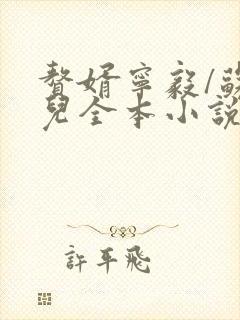 贅婿寧毅/蘇
兒全本小說
許平飛